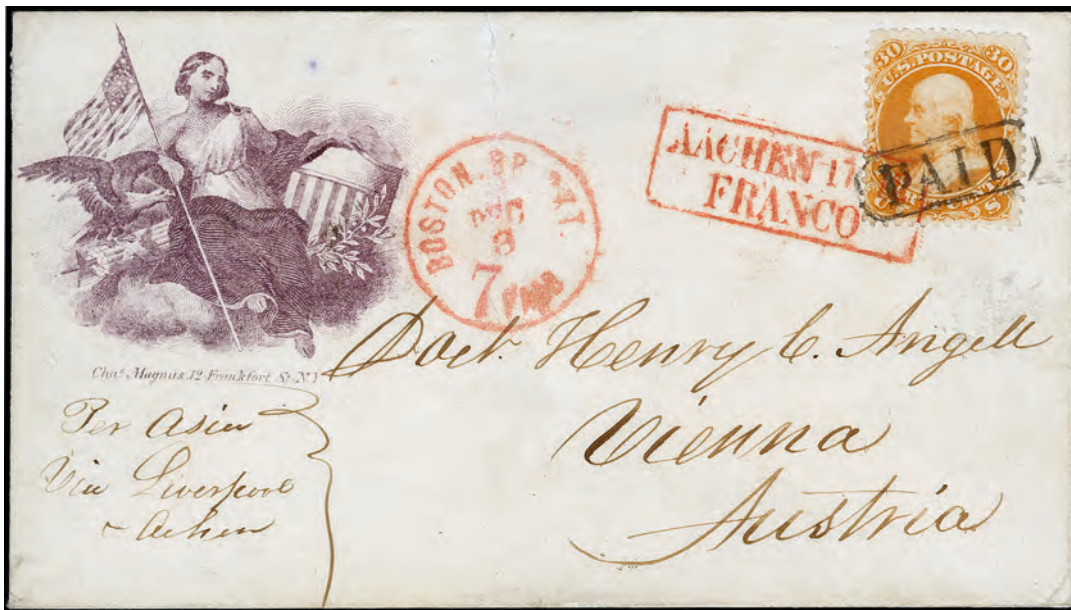 30 U.S.POSTAGE 30
PAID
AACHEN 17
FRANCO
BOSTON. BR. PKT.
DEC
3
7 PAID
Chas. Magnus. 12 Frankfort St. N.Y.
Doct. Henry C. Angell
Vienna
Austria
Per Asia
Via Liverpool
& Achen